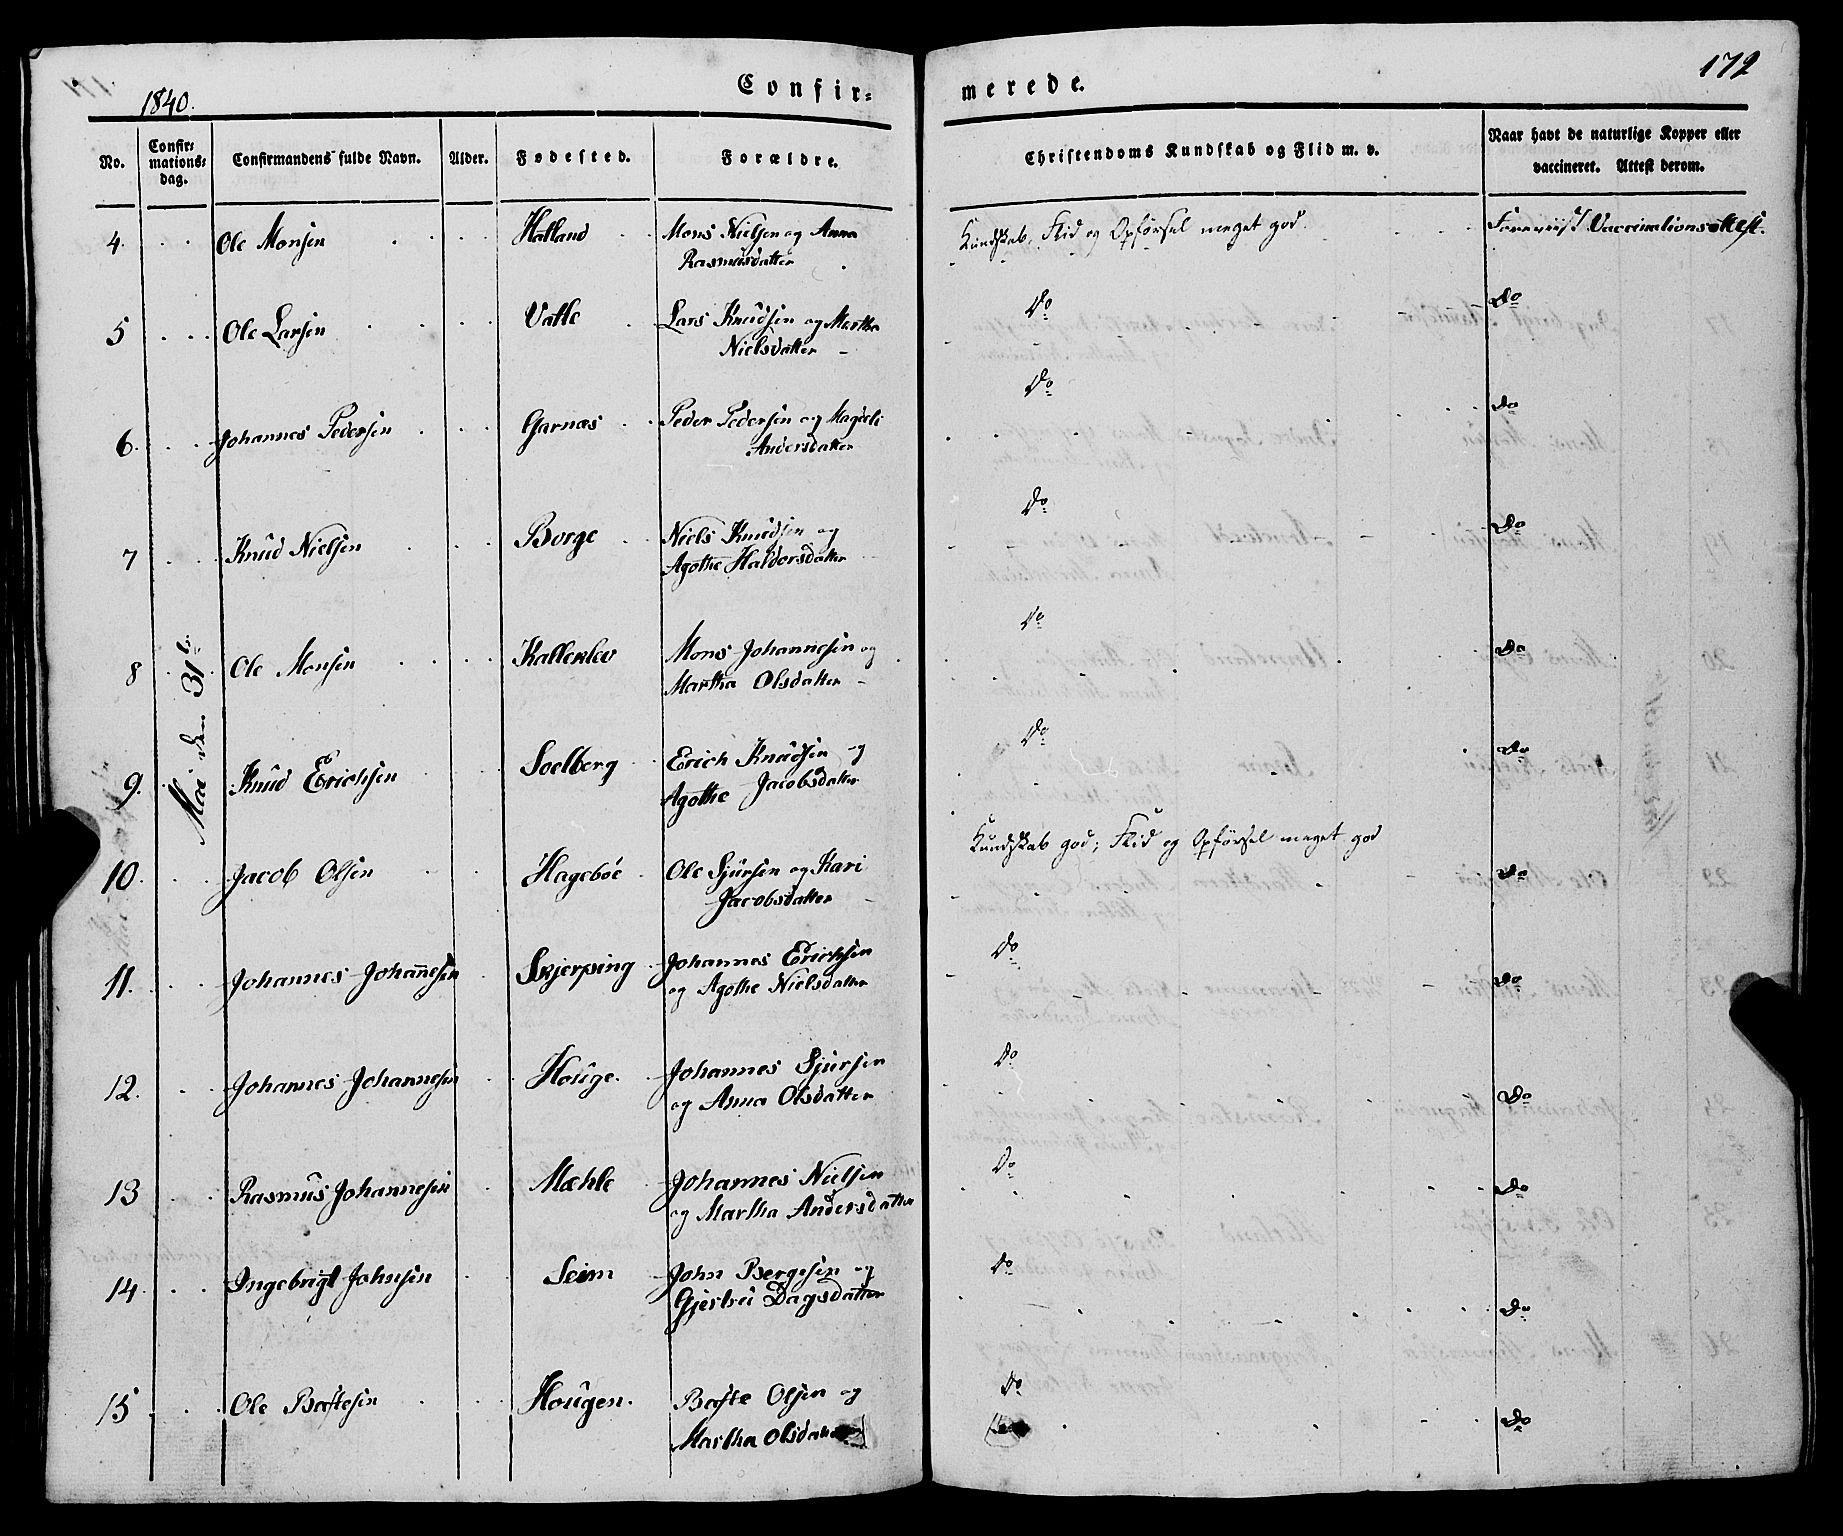 1840.
Confir= merede.
172
No. Confir= mations= dag. Confirmandens fulde Navn. Alder. Fødested. Forældre. Christendoms Kundskab og Flid m. v. Naar havt de naturlige Kopper eller vaccineret. Attest derom.
Mai den 31te
4. Ole Monsen Hatland Mons Nielsen og Anna Kundskab, Flid og Opførsel meget god. Foreviist Vaccinationsattest.
Rasmusdatter
5 Ole Larsen Vatle Lars Knudsen og Martha Do Do
Nielsdatter
6. Johannes Pedersen Garnæs Peder Pedersen og Magdeli Do Do
Andersdatter
7 Knud Nielsen Borge Niels Knudsen og Do Do
Agothe Haldorsdatter
8 Ole Monsen Kalleklev Mons Johannesen og Do Do
Martha Olsdatter
9. Knud Erichsen Soelberg Erich Knudsen og Do Do
Agothe Jacobsdatter
10. Jacob Olsen Hagebøe Ole Sjursen og Kari Kundskab god; Flid og Opførsel meget god Do
Jacobsdatter
11. Johannes Johannesen Skjerping Johannes Erichsen Do Do
og Agothe Nielsdatter
12. Johannes Johannesen Houge. Johannes Sjursen Do Do
og Anna Olsdatter
13 Rasmus Johannesen Mæhle Johannes Nielsen Do Do
og Martha Andersdatter
14. Ingebrigt Johnsen Seim John Bergesen og Do Do
Gjertrei Dagsdatter
15 Ole Bastesen Hougen. Baste Olsen og Do Do
Martha Olsdatter